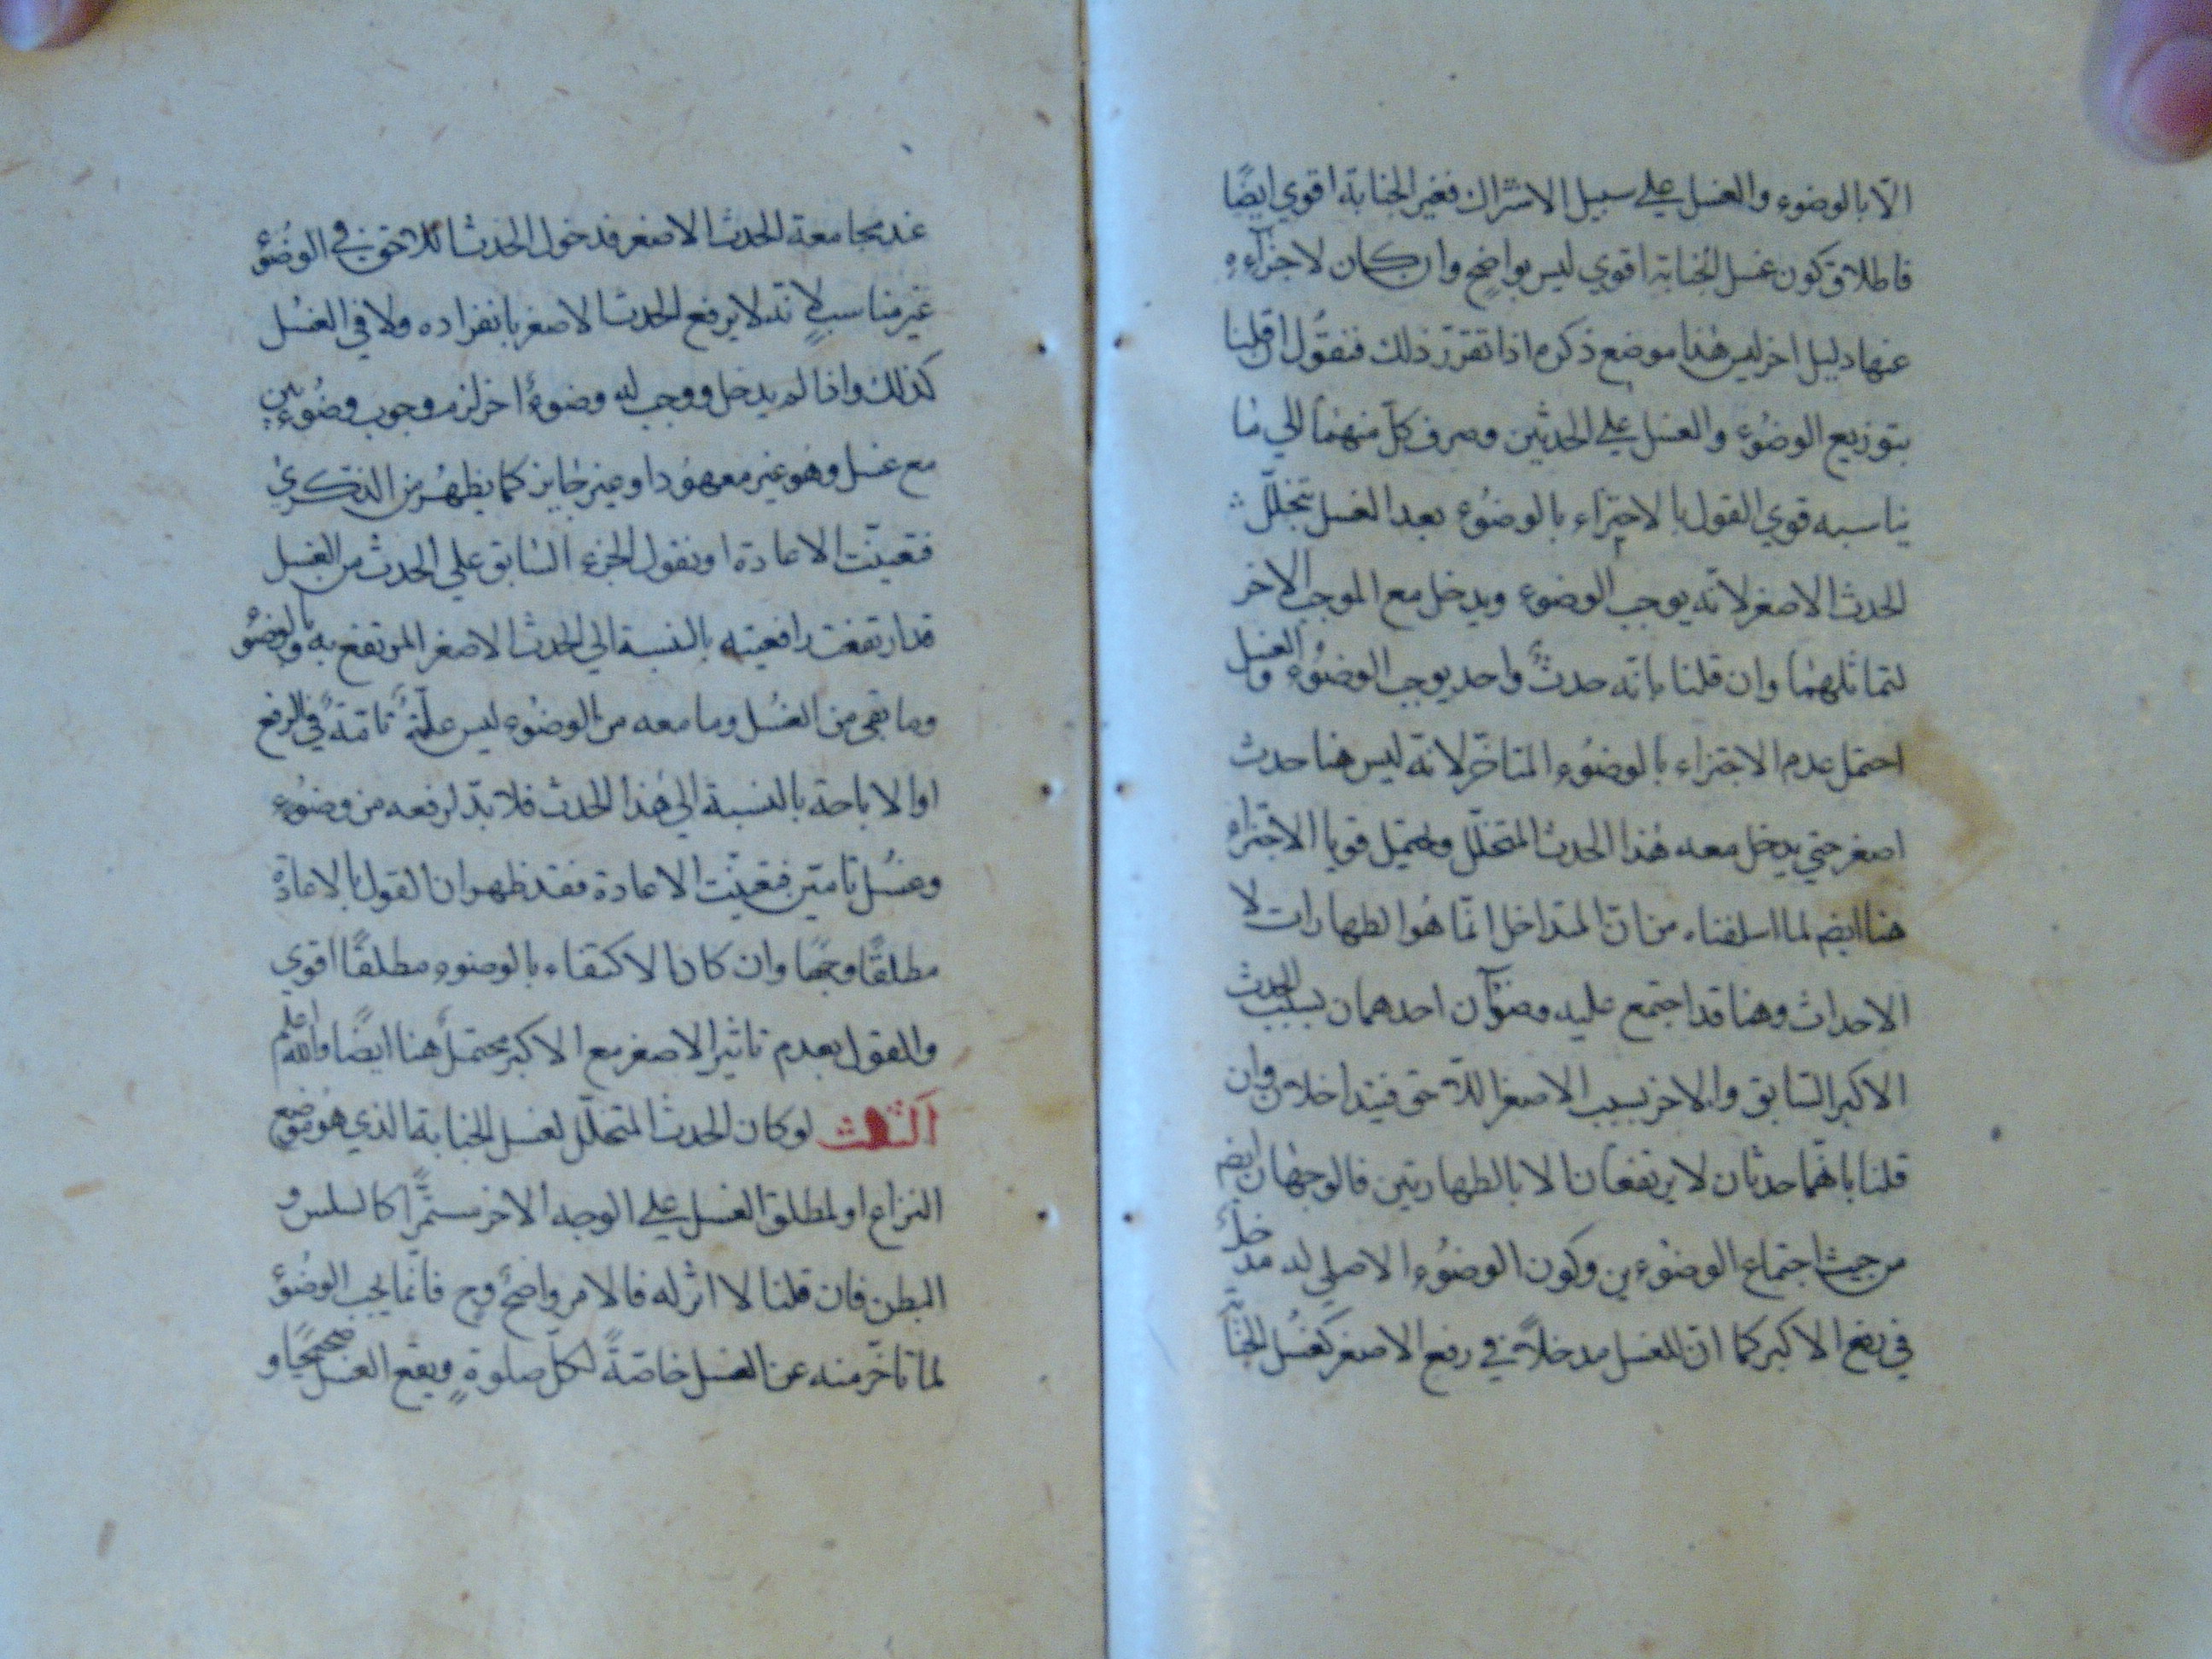 الّا بالوضوء والغسل علي سبيل الاشتراك فغير الجنابة اقوي ايضًا
فاطلاق كون غسل الجنابة اقوي ليس بواضح وان كان لاجزآءه
عنها دليل اخر ليس هذا موضع ذكره اذا تقرّر ذلك فنقول ان قلنا
بتوزيع الوضوء والغسل علي الحدثين وصرف كلّ منهما الي ما
يناسبه قوي القول بالاجتزاء بالوضوء بعد الغسل بتخلّل
الحدث الاصغر لانّه يوجب الوضوء ويدخل مع الموجب الاخر
لتماثلهما وان قلنا بانّه حدثٌ واحد يوجب الوضوء والغسل
احتمل عدم الاجتزاء بالوضوء المتاخّر لانّه ليس هنا حدث
اصغر حتي يدخل معه هذا الحدث المتخلّل ويحتمل قويا الاجتزاء
هنا ايضم لما اسلفناه من انّ المتداخل انّما هو الطهارات لا
الاحداث وهنا قد اجتمع عليه وضوآن احدهما بسبب الحدث
الاكبر السّابق والاخر بسبب الاصغر اللاّحق فيتداخلان وان
قلنا بانّهما حدثان لا يرتفعان الا بالطهارتين فالوجهان ايضم
من حيث اجتماع الوضوءين وكون الوضوء الاصلي له مدخلٌ
في رفع الاكبر كما انّ للغسل مدخلاً في رفع الاصغر كغسل الجنابة
عند مجامعة الحدث الاصغر فدخول الحدث اللاحق في الوضوء
غير مناسب لانّه لا يرفع الحدث الاصغر بانفراده ولا في الغسل
كذلك واذا لم يدخل ووجب له وضوءٌ اخر لزم وجوب وضوءين
مع غسل وهو غير معهود او غير جايز كما يظهر من الذكري
فتعيّنت الاعادة او نقول الجزء السّابق علي الحدث من الغسل
قد ارتفعت رافعيته بالنسبة الي الحدث الاصغر المرتفع به وبالوضوء
وما بقي من الغسل وما معه من الوضوء ليس علّةً تامّةً في الرفع
او الاباحة بالنسبة الي هذا الحدث فلا بدّ لرفعه من وضوء
وغسل تامّين فتعيّنت الاعادة فقد ظهر ان للقول بالاعادة
مطلقًا وجهًا وان كان الاكتفاء بالوضوء مطلقًا اقوي
والقول بعدم تاثير الاصغر مع الاكبر محتملٌ هنا ايضًا والله اعلم
الثّالث لو كان الحدث المتخلّل لغسل الجنابة الذي هو موضع
النزاع او لمطلق الغسل علي الوجه الاخر مستمرًّا كالسلس و
البطن فان قلنا لا اثر له فالامر واضح وح فانّما يجب الوضوء
لما تاخّر منه عن الغسل خاصّةً لكلّ صلوةٍ ويقع الغسل صحيحًا و